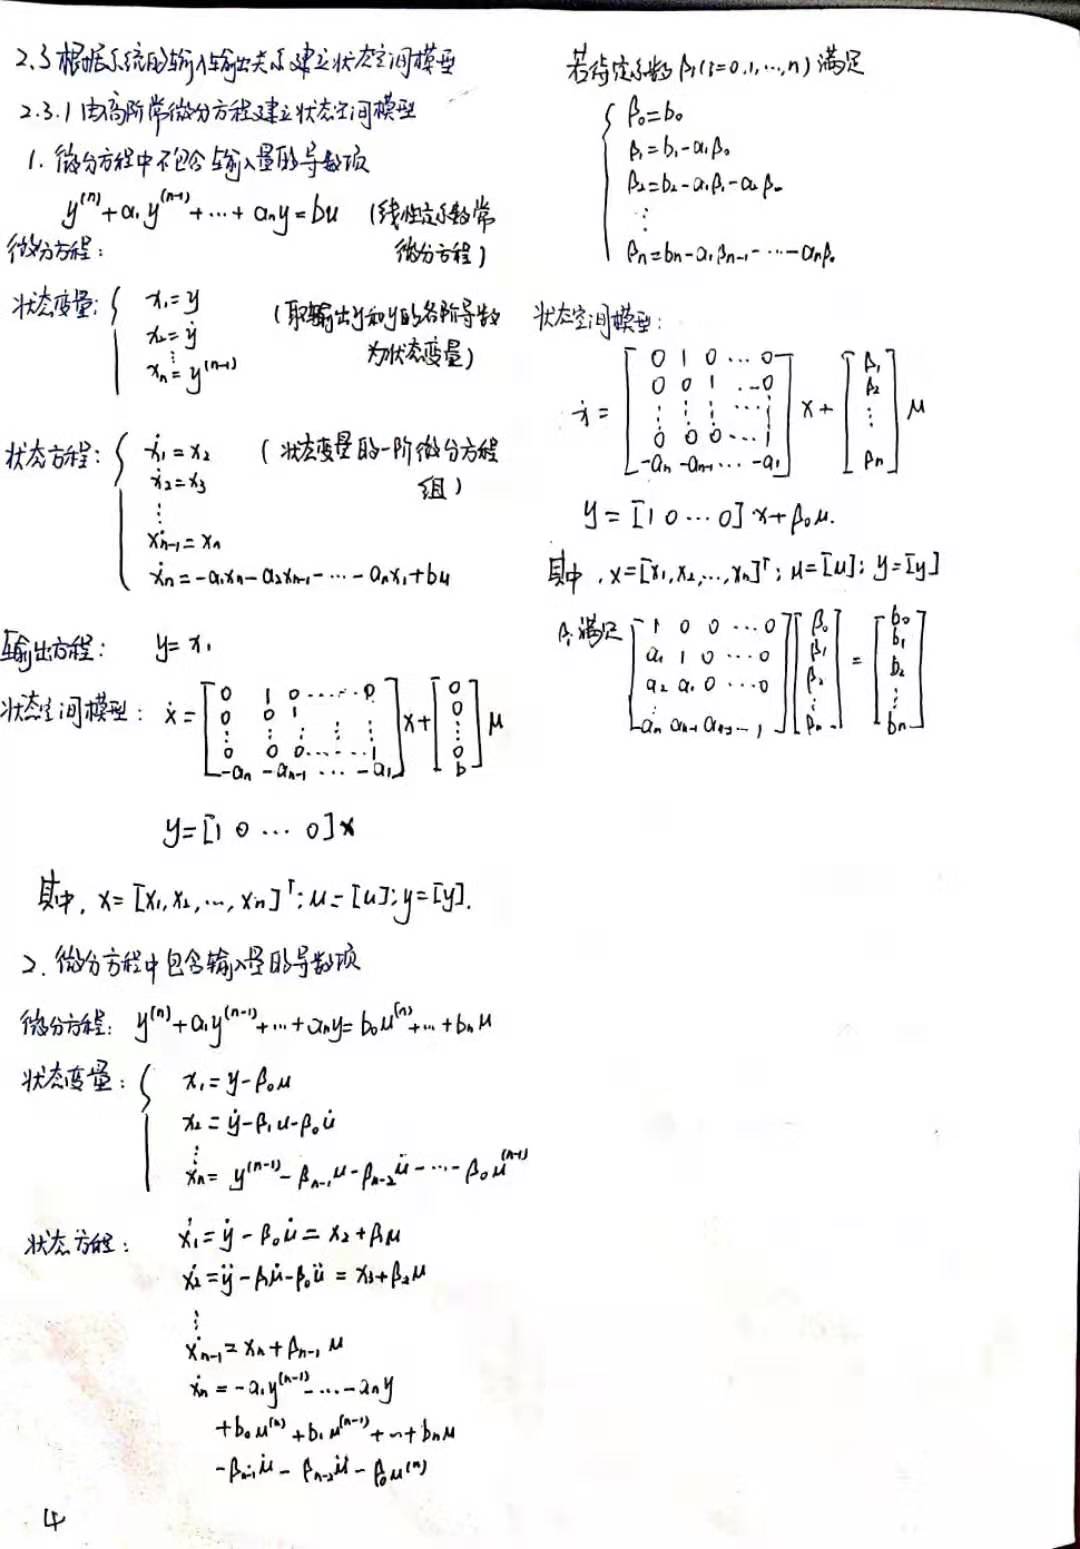 2.3 根据系统的输入输出关系建立状态空间模型
2.3.1 由高阶常微分方程建立状态空间模型
1. 微分方程中不包含输入量的导数项
y⁽ⁿ⁾+a₁y⁽ⁿ⁻¹⁾+⋯+aₙy=bu (线性定系数常
微分方程: 微分方程)
状态变量: { x₁=y (取输出y和y的各阶导数
x₂=ẏ 为状态变量)
⋮
xₙ=y⁽ⁿ⁻¹⁾
状态方程: { ẋ₁=x₂ (状态变量的一阶微分方程
ẋ₂=x₃ 组)
⋮
ẋₙ₋₁=xₙ
ẋₙ=-a₁xₙ-a₂xₙ₋₁-⋯-aₙx₁+bu
输出方程: y=x₁
状态空间模型: ẋ= [0 1 0 ⋯⋯ 0] x+ [0] u
[0 0 1 ⋮ ⋮] [0]
[⋮ ⋮ ⋮ ⋮ ⋮] [⋮]
[0 0 0 ⋯⋯ 1] [0]
[-aₙ -aₙ₋₁ ⋯ -a₁] [b]
y=[1 0 ⋯ 0]x
其中, x=[x₁,x₂,…,xₙ]ᵀ; u=[u]; y=[y].
2. 微分方程中包含输入量的导数项
微分方程: y⁽ⁿ⁾+a₁y⁽ⁿ⁻¹⁾+⋯+aₙy=b₀u⁽ⁿ⁾+⋯+bₙu
状态变量: { x₁=y-β₀u
x₂=ẏ-β₁u-β₀u̇
⋮
xₙ=y⁽ⁿ⁻¹⁾-βₙ₋₁u-βₙ₋₂u̇-⋯-β₀u⁽ⁿ⁻¹⁾
状态方程: ẋ₁=ẏ-β₀u̇=x₂+β₁u
ẋ₂=ÿ-β₁u̇-β₀ü=x₃+β₂u
⋮
ẋₙ₋₁=xₙ+βₙ₋₁u
ẋₙ=-a₁y⁽ⁿ⁻¹⁾-⋯-aₙy
+b₀u⁽ⁿ⁾+b₁u⁽ⁿ⁻¹⁾+⋯+bₙu
-βₙ₋₁u̇-βₙ₋₂ü-β₀u⁽ⁿ⁾
4
若待定系数βᵢ(i=0,1,…,n)满足
{ β₀=b₀
β₁=b₁-a₁β₀
β₂=b₂-a₁β₁-a₂β₀
⋮
βₙ=bₙ-a₁βₙ₋₁-⋯-aₙβ₀
状态空间模型:
ẋ= [0 1 0 ⋯ 0] x+ [β₁] u
[0 0 1 ⋯ 0] [β₂]
[⋮ ⋮ ⋮ ⋯ ⋮] [⋮]
[0 0 0 ⋯ 1]
[-aₙ -aₙ₋₁ ⋯ -a₁] [βₙ]
y=[1 0 ⋯ 0]x+β₀u.
其中, x=[x₁,x₂,…,xₙ]ᵀ; u=[u]; y=[y]
βᵢ满足 [1 0 0 ⋯ 0] [β₀] = [b₀]
[a₁ 1 0 ⋯ 0] [β₁] [b₁]
[a₂ a₁ 0 ⋯ 0] [β₂] [b₂]
[⋮] [⋮] [⋮]
[aₙ aₙ₋₁ aₙ₋₂ ⋯ 1] [βₙ] [bₙ]